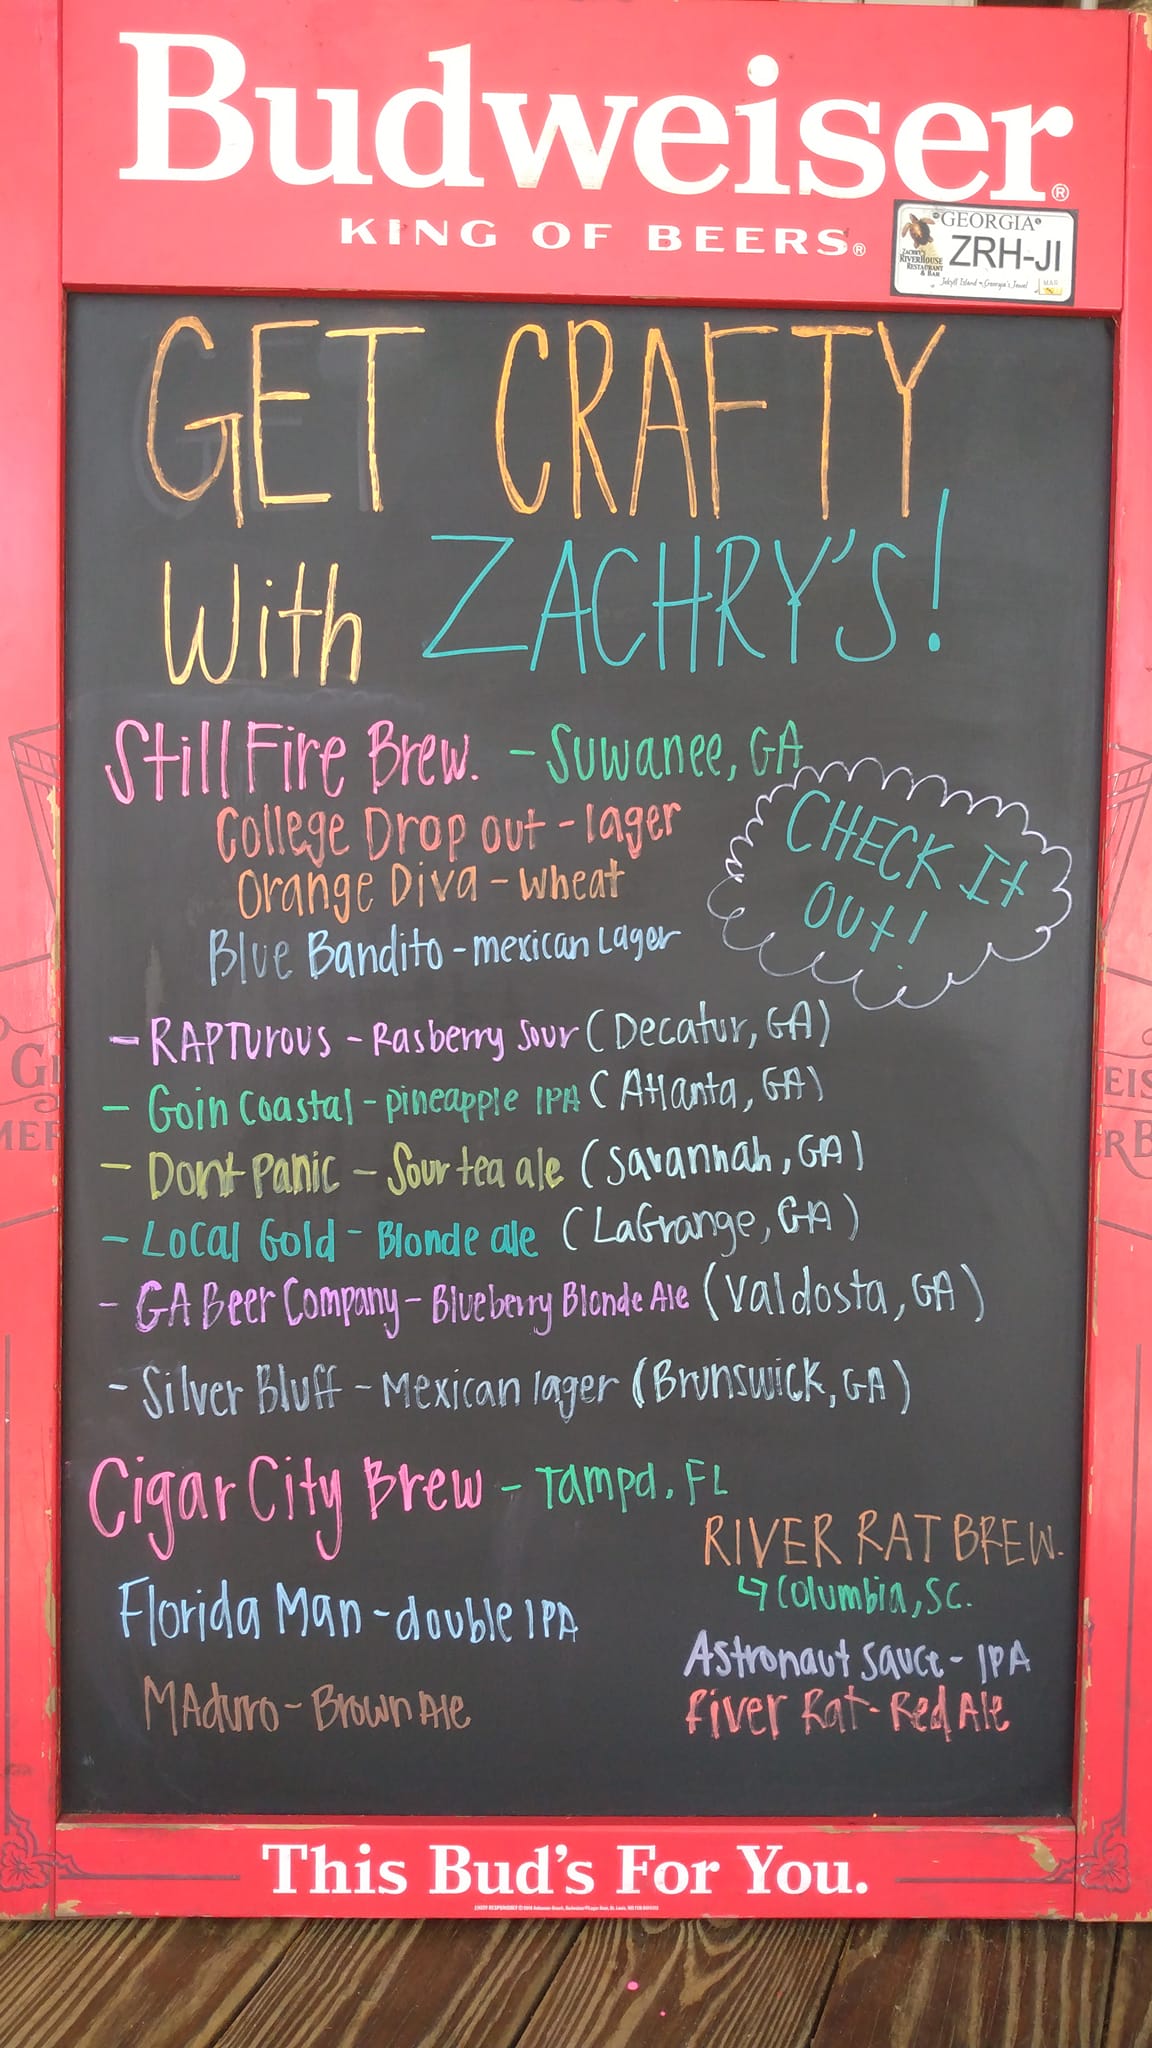 Budweiser®
KING OF BEERS®
GEORGIA
ZACHRY'S
RIVERHOUSE
RESTAURANT
& BAR
ZRH-JI
MAR
Jekyll Island ~ Georgia's Jewel
GET CRAFTY
With ZACHRY'S!
Still Fire Brew. - Suwanee, GA
College Drop out - lager
Orange Diva - Wheat
Blue Bandito - mexican Lager
CHECK It
Out!
- RAPTUROUS - Rasberry Sour (Decatur, GA)
- Goin Coastal - pineapple IPA (Atlanta, GA)
- Dont Panic - Sour tea ale (Savannah, GA)
- Local Gold - Blonde ale (LaGrange, GA)
- GA Beer Company - Blueberry Blonde Ale (Valdosta, GA)
- Silver Bluff - Mexican lager (Brunswick, GA)
Cigar City Brew - Tampa, FL
Florida Man - double IPA
MAduro - Brown Ale
RIVER RAT BREW.
↳ Columbia, SC.
Astronaut Sauce - IPA
River Rat - Red Ale
This Bud's For You.